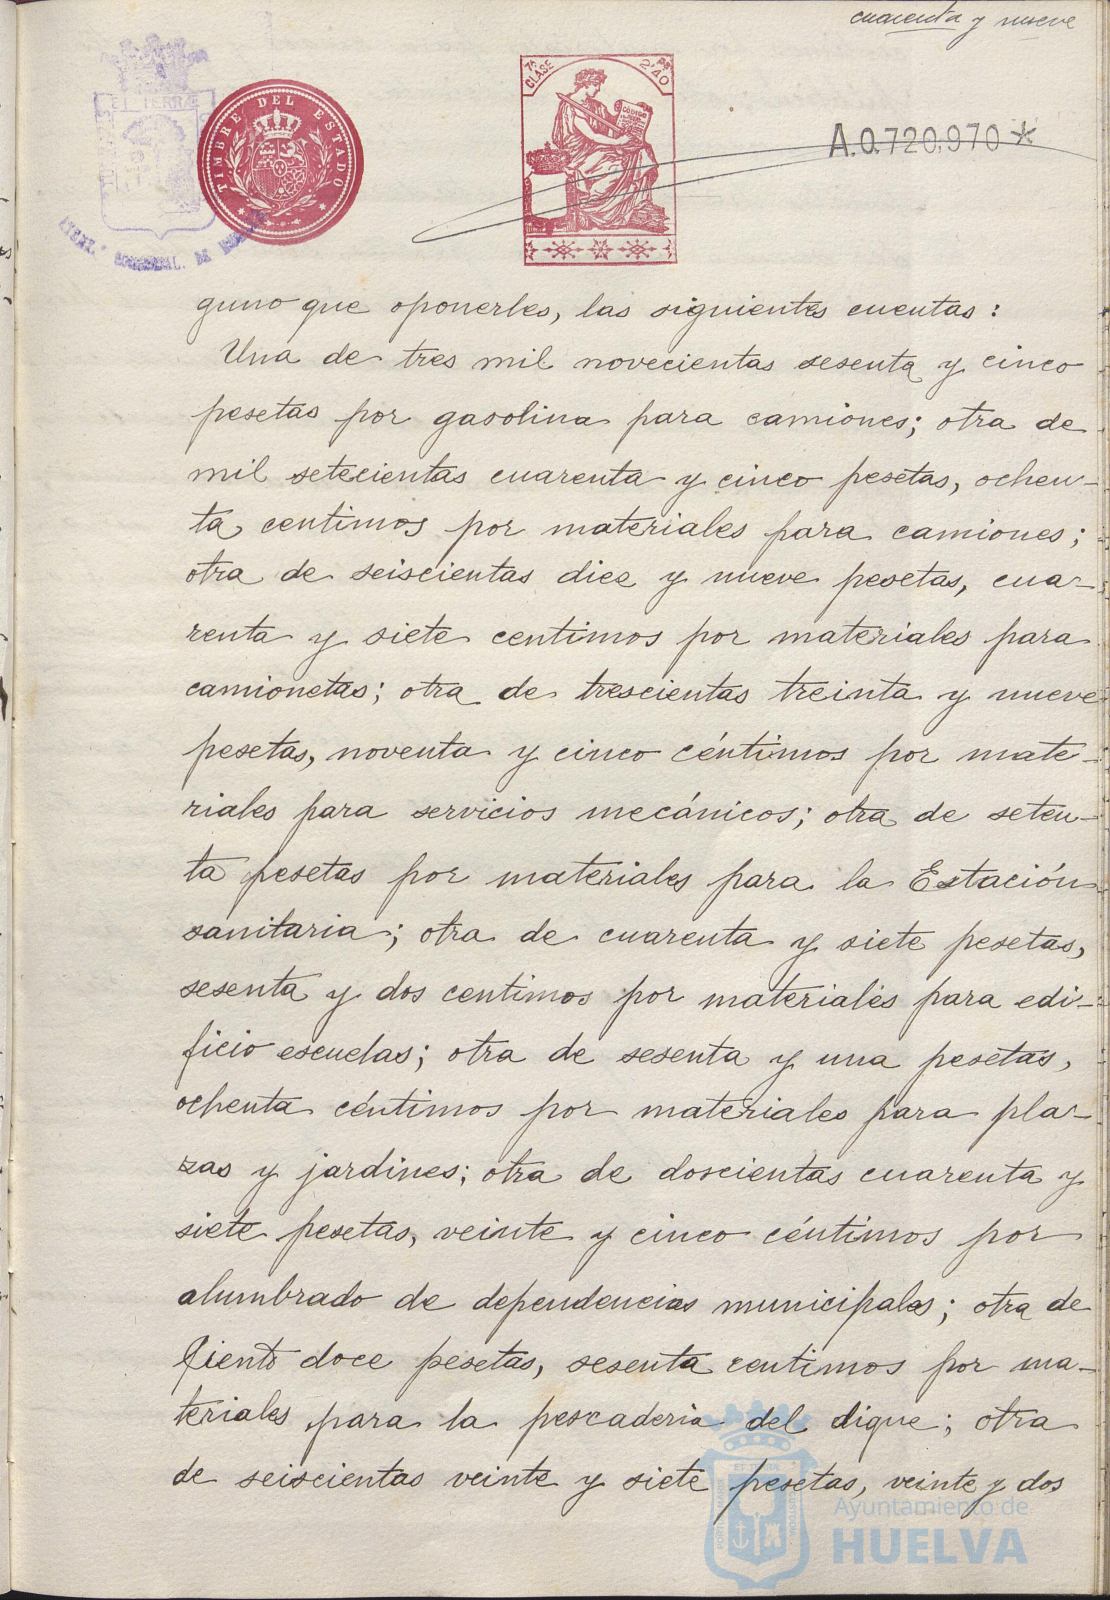 cuarenta y nueve
7ª CLASE
2'40 PS
CODIGO
TIMBRE DEL ESTADO
ET TERRÆ
A.0.720,970*
guno que oponerles, las siguientes cuentas:
Una de tres mil novecientas sesenta y cinco
pesetas por gasolina para camiones; otra de
mil setecientas cuarenta y cinco pesetas, ochen-
ta centimos por materiales para camiones;
otra de seiscientas diez y nueve pesetas, cua-
renta y siete centimos por materiales para
camionetas; otra de trescientas treinta y nueve
pesetas, noventa y cinco céntimos por mate-
riales para servicios mecánicos; otra de seten-
ta pesetas por materiales para la Estación
sanitaria; otra de cuarenta y siete pesetas,
sesenta y dos centimos por materiales para edi-
ficio escuelas; otra de sesenta y una pesetas,
ochenta céntimos por materiales para pla-
zas y jardines; otra de doscientas cuarenta y
siete pesetas, veinte y cinco céntimos por
alumbrado de dependencias municipales; otra de
ciento doce pesetas, sesenta centimos por ma-
teriales para la pescaderia del dique; otra
de seiscientas veinte y siete pesetas, veinte y dos
Ayuntamiento de
HUELVA